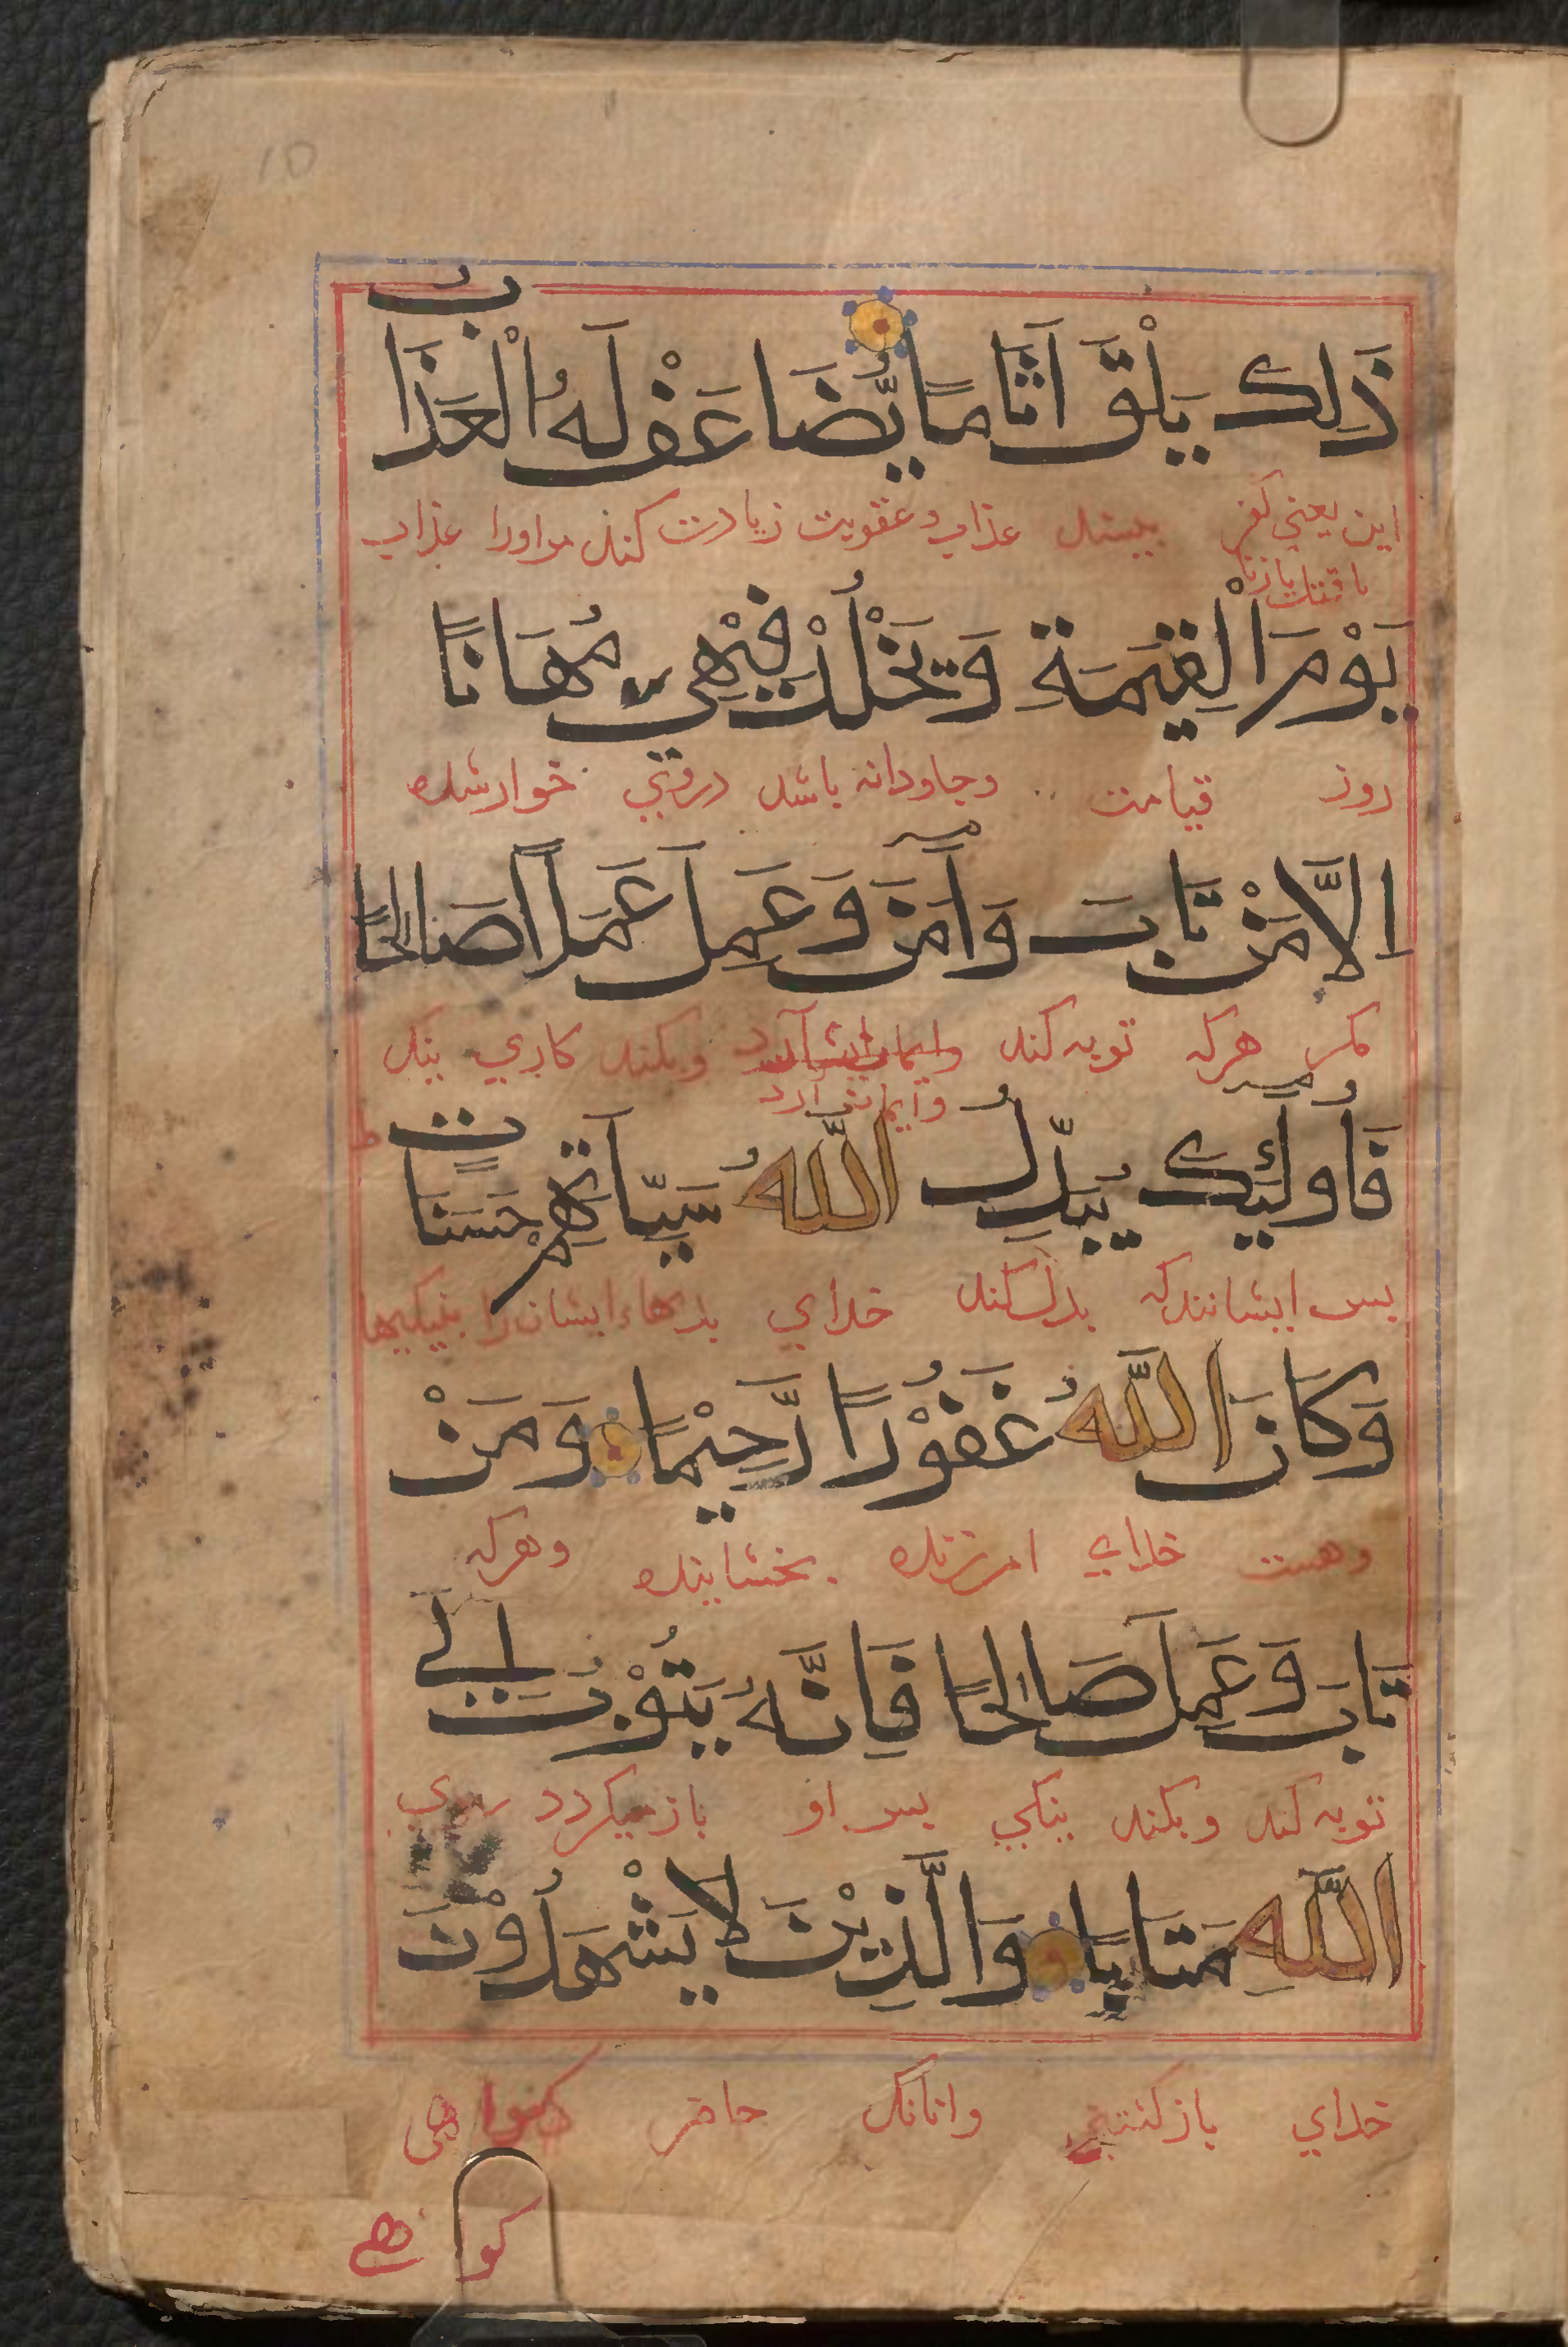 10
ذَلِكَ يَلْقَ اَثَامًا يُّضَاعَفْ لَهُ الْعَذَابُ
این یعنی کفر ببیند عذاب و عقوبت زیادت کنند مر اورا عذاب
یا قتل یا زنا
يَوْمَ الْقِيٰمَةِ وَيَخْلُدْ فِيْهٖ مُهَانًا
روز قیامت وجاودانه باشد دروی خوار شده
اِلَّا مَنْ تَابَ وَاٰمَنَ وَعَمِلَ عَمَلًا صَالِحًا
مکر هرکه توبه کند وایمان آرد وبکند کاری نیک
وایمان آرد
فَاُولٰٓئِكَ يُبَدِّلُ اللّٰهُ سَيِّاٰتِهِمْ حَسَنَاتٍ ط
بس ایشانندکه بدل کند خدای بدیهاء ایشان را بنیکیها
وَكَانَ اللّٰهُ غَفُوْرًا رَّحِيْمًا وَمَنْ
وهست خدای امرزنده بخشاینده وهرکه
تَابَ وَعَمِلَ صَالِحًا فَاِنَّهُ يَتُوْبُ اِلَى
توبه کند وبکند نیکی بس او باز میکردد بسوی
اللّٰهِ مَتَابًا وَالَّذِيْنَ لَا يَشْهَدُوْنَ
خدای بازکشتنی وانانک حاضر کواهی
کواهی